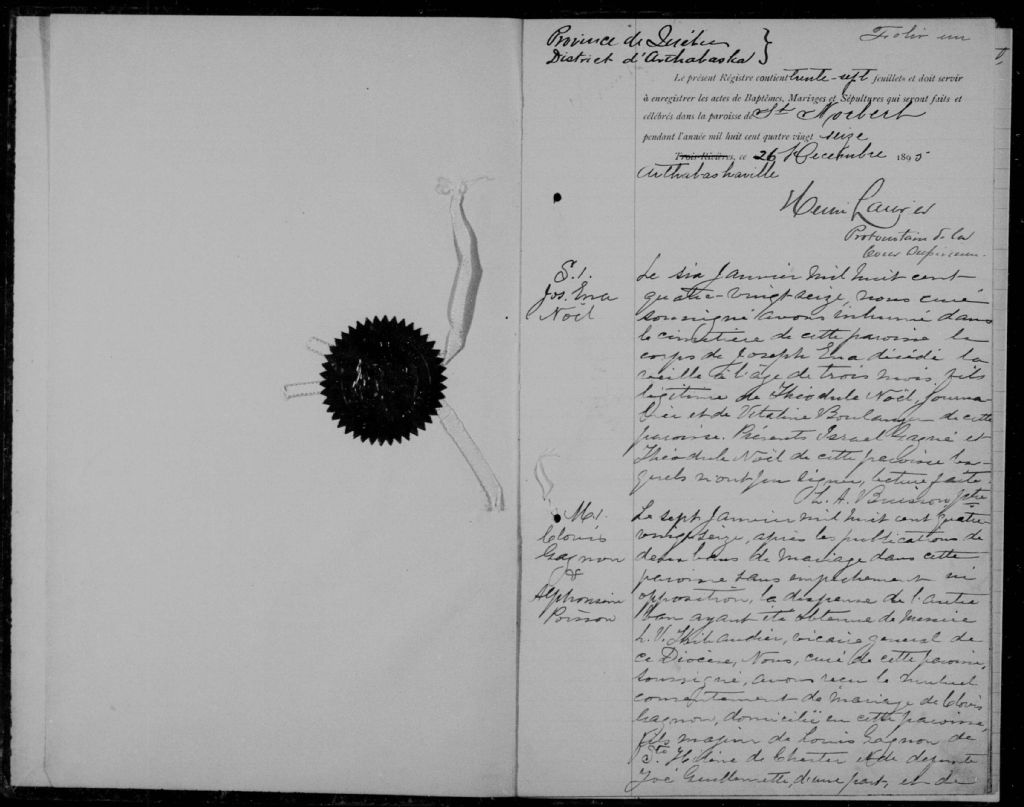 Province de Québec }
District d'Arthabaska }
Folio un
Le présent Régistre contient trente-sept feuillets et doit servir
à enregistrer les actes de Baptêmes, Mariages et Sépultures qui seront faits et
célébrés dans la paroisse de St Norbert
pendant l'année mil huit cent quatre vingt seize
Trois-Rivières, ce 26 Décembre 1895
Arthabaskaville
Henri Laurier
Protonotaire de la
Cour Supérieure.
S. 1.
Jos. Ena
Noël
Le six Janvier mil huit cent
quatre-vingt seize, nous curé
soussigné avons inhumé dans
le cimetière de cette paroisse le
corps de Joseph Ena décédé la
veille à l'âge de trois mois, fils
légitime de Théodule Noël, journa-
lier et de Vitaline Boulanger de cette
paroisse. Présents Israel Gagné et
Théodule Noël de cette paroisse les-
quels n'ont pu signer, lecture faite.
L. A. Buisson ptre
M. 1.
Clovis
Gagnon
&
Alphonsine
Poisson
Le sept Janvier mil huit cent quatre
vingt seize, après les publications de
deux bans de mariage dans cette
paroisse sans empêchement ni
opposition, la dispense de l'autre
ban ayant été obtenue de Messire
L. V. Thibaudier, vicaire général de
ce Diocèse, Nous, curé de cette paroisse,
soussigné, avons reçu le mutuel
consentement de mariage de Clovis
Gagnon, domicilié en cette paroisse,
fils majeur de Louis Gagnon de
Ste Hélène de Chester et de défunte
Joé Guillemette, d'une part, et de